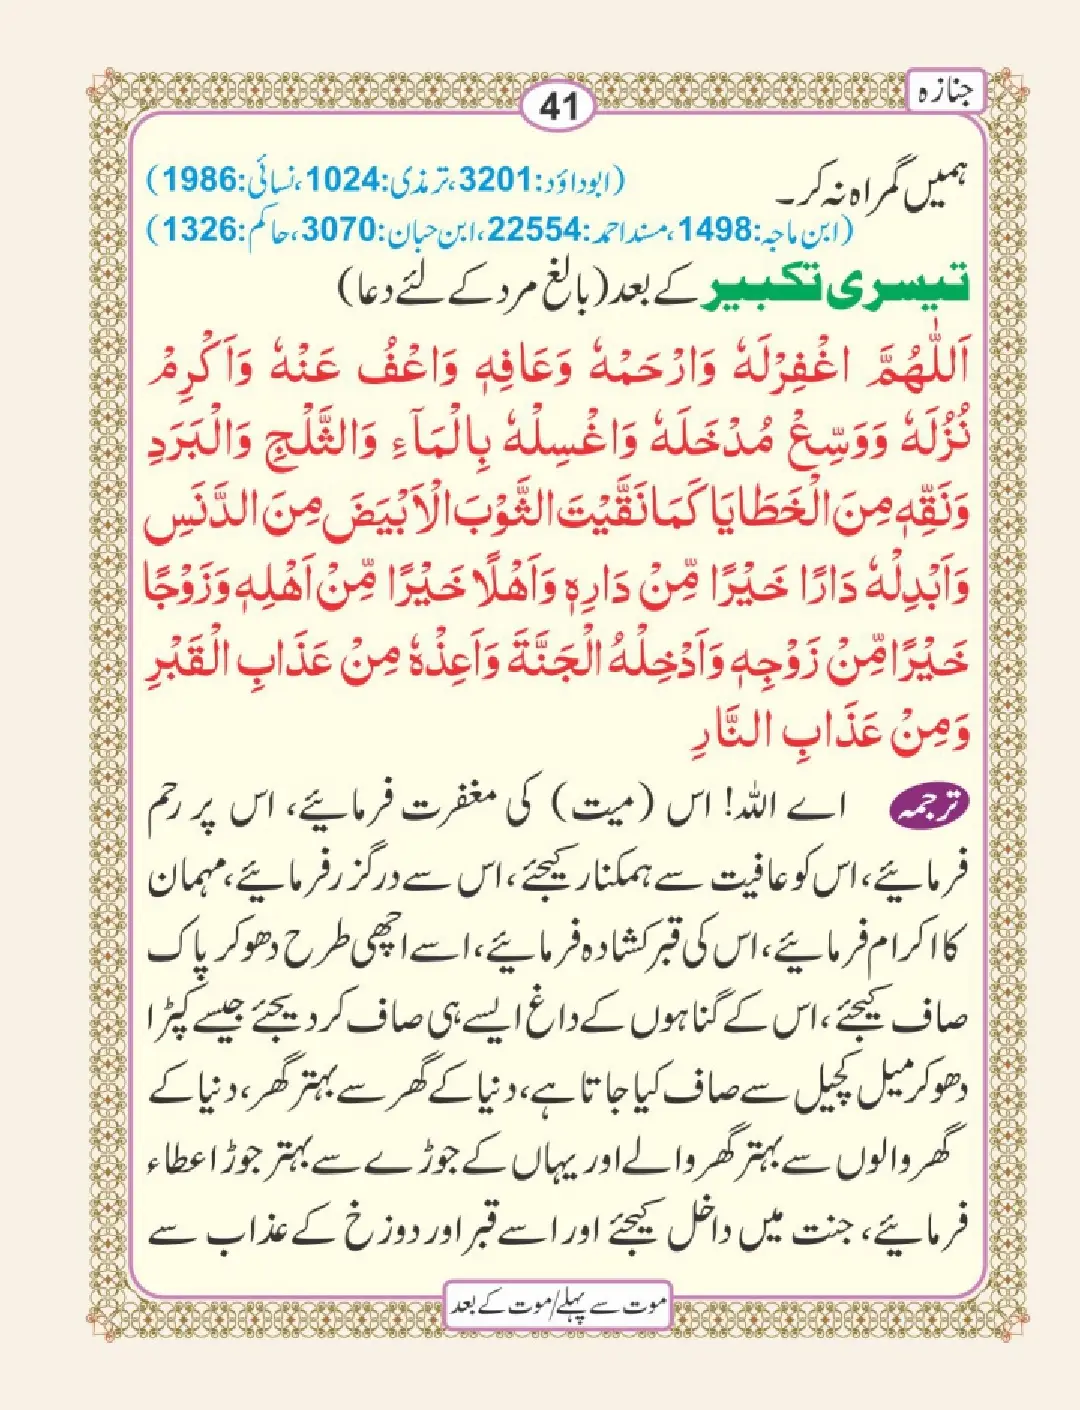 جنازہ
41
ہمیں گمراہ نہ کر۔ (ابوداؤد:3201،ترمذی:1024،نسائی:1986)
(ابن ماجہ:1498،مسند احمد:22554،ابن حبان:3070،حاکم:1326)
تیسری تکبیر کے بعد (بالغ مرد کے لئے دعا)
اَللّٰهُمَّ اغْفِرْلَهٗ وَارْحَمْهٗ وَعَافِهٖ وَاعْفُ عَنْهٗ وَاَكْرِمْ
نُزُلَهٗ وَوَسِّعْ مُدْخَلَهٗ وَاغْسِلْهٗ بِالْمَآءِ وَالثَّلْجِ وَالْبَرَدِ
وَنَقِّهٖ مِنَ الْخَطَايَا كَمَا نَقَّيْتَ الثَّوْبَ الْاَبْيَضَ مِنَ الدَّنَسِ
وَاَبْدِلْهٗ دَارًا خَيْرًا مِّنْ دَارِهٖ وَاَهْلًا خَيْرًا مِّنْ اَهْلِهٖ وَزَوْجًا
خَيْرًا مِّنْ زَوْجِهٖ وَاَدْخِلْهُ الْجَنَّةَ وَاَعِذْهُ مِنْ عَذَابِ الْقَبْرِ
وَمِنْ عَذَابِ النَّارِ
ترجمہ اے اللہ! اس (میت) کی مغفرت فرمائیے، اس پر رحم
فرمائیے، اس کو عافیت سے ہمکنار کیجئے، اس سے درگزر فرمائیے، مہمان
کا اکرام فرمائیے، اس کی قبر کشادہ فرمائیے، اسے اچھی طرح دھو کر پاک
صاف کیجئے، اس کے گناہوں کے داغ ایسے ہی صاف کر دیجئے جیسے کپڑا
دھو کر میل کچیل سے صاف کیا جاتا ہے، دنیا کے گھر سے بہتر گھر، دنیا کے
گھر والوں سے بہتر گھر والے اور یہاں کے جوڑے سے بہتر جوڑا عطاء
فرمائیے، جنت میں داخل کیجئے اور اسے قبر اور دوزخ کے عذاب سے
موت سے پہلے/موت کے بعد